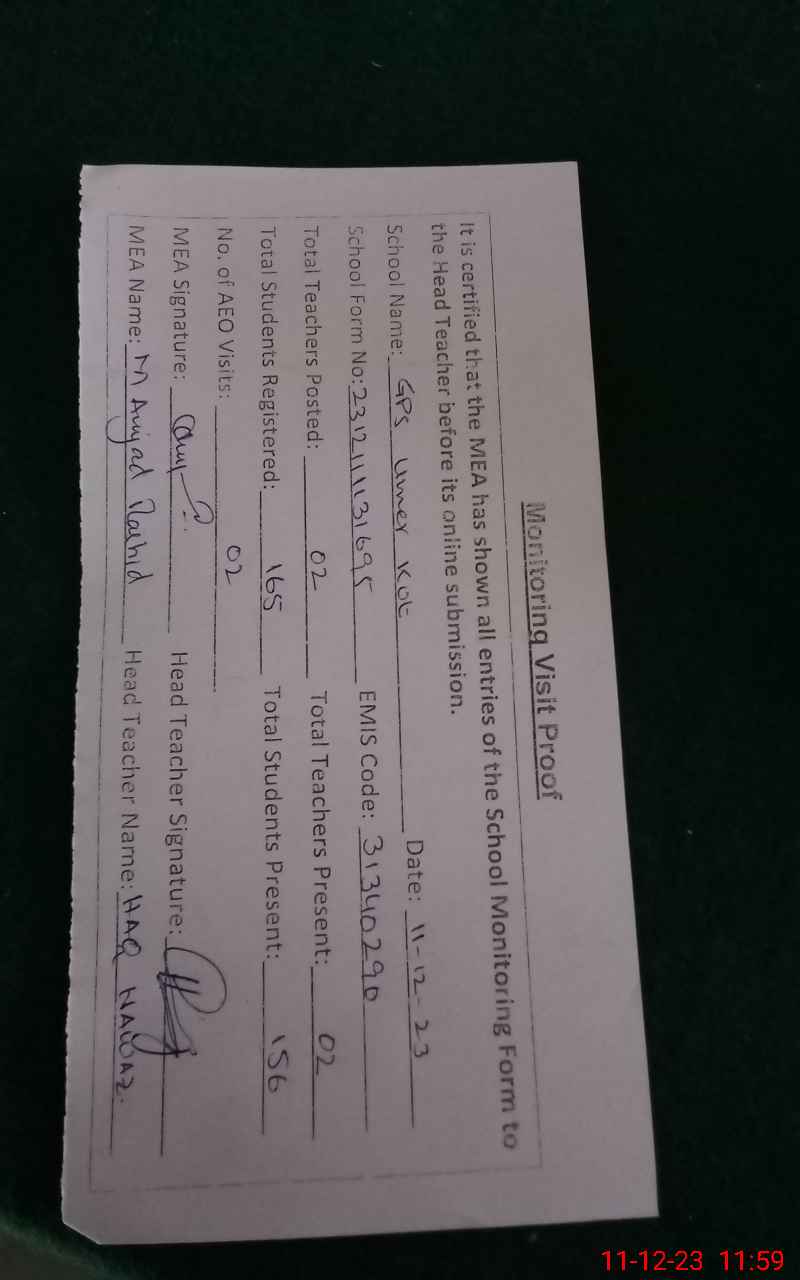 Monitoring Visit Proof
It is certified that the MEA has shown all entries of the School Monitoring Form to
the Head Teacher before its online submission.
School Name: GPS Umer Kot Date: 11-12-23
School Form No: 231211131695 EMIS Code: 31340290
Total Teachers Posted: 02 Total Teachers Present: 02
Total Students Registered: 165 Total Students Present: 156
No. of AEO Visits: 02
MEA Signature: Head Teacher Signature:
MEA Name: M Amjad Rashid Head Teacher Name: HAQ NAWAZ.
11-12-23 11:59